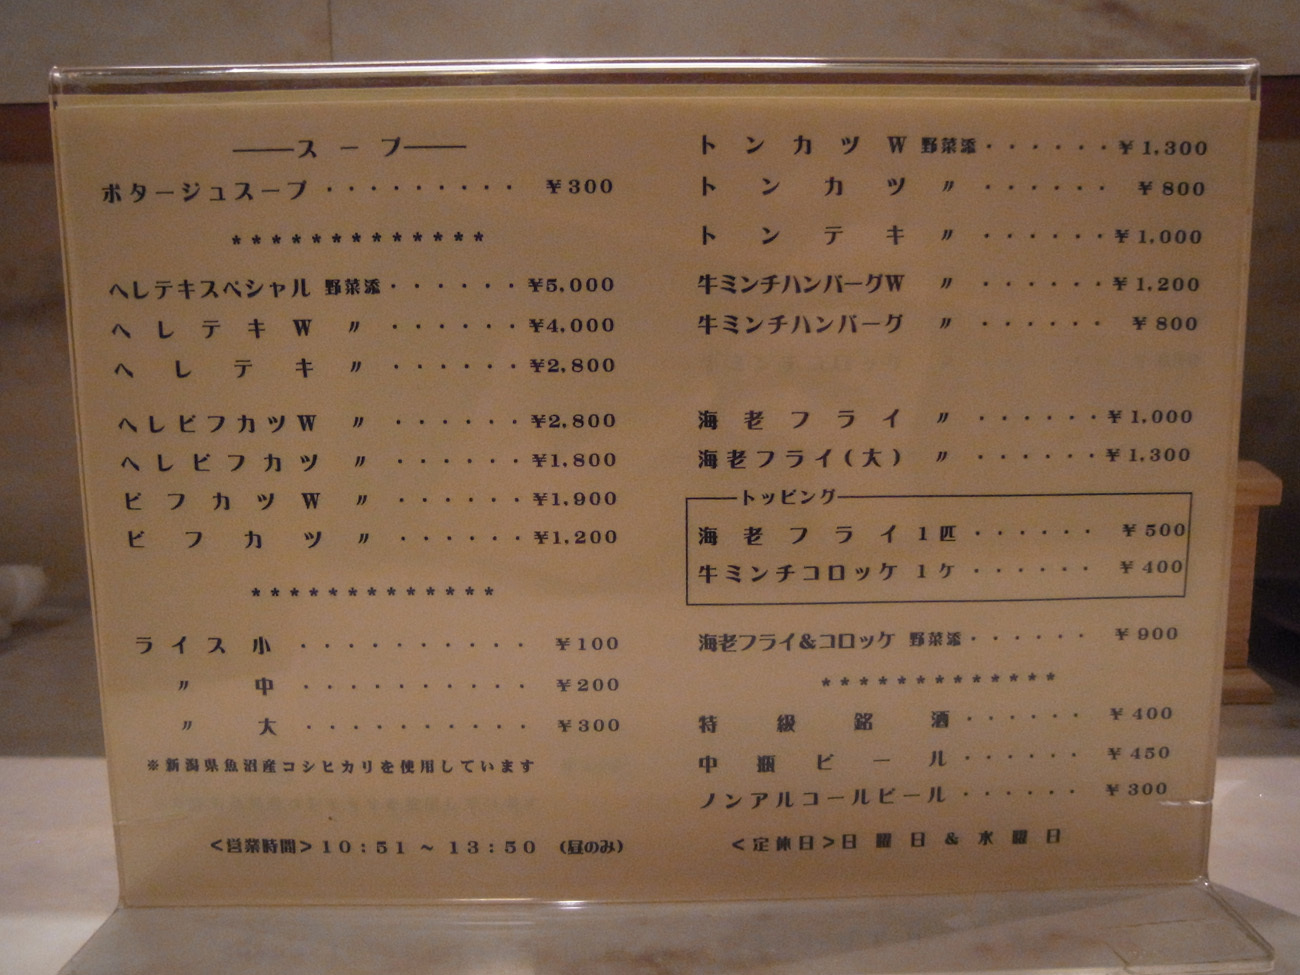 スープ
ポタージュスープ ・・・・・・・・・・ ¥300
＊＊＊＊＊＊＊＊＊＊＊＊＊
ヘレテキスペシャル 野菜添・・・・・・ ¥5,000
ヘレテキW 〃 ・・・・・・ ¥4,000
ヘレテキ 〃 ・・・・・・ ¥2,800
ヘレビフカツW 〃 ・・・・・・ ¥2,800
ヘレビフカツ 〃 ・・・・・・ ¥1,800
ビフカツW 〃 ・・・・・・ ¥1,900
ビフカツ 〃 ・・・・・・ ¥1,200
＊＊＊＊＊＊＊＊＊＊＊＊＊
ライス小 ・・・・・・・・・・ ¥100
〃 中 ・・・・・・・・・・ ¥200
〃 大 ・・・・・・・・・・ ¥300
※新潟県魚沼産コシヒカリを使用しています
<営業時間>10:51～13:50 (昼のみ)
トンカツW 野菜添・・・・・・ ¥1,300
トンカツ 〃 ・・・・・・ ¥800
トンテキ 〃 ・・・・・・ ¥1,000
牛ミンチハンバーグW 〃 ・・・・・・ ¥1,200
牛ミンチハンバーグ 〃 ・・・・・・ ¥800
海老フライ 〃 ・・・・・・ ¥1,000
海老フライ(大) 〃 ・・・・・・ ¥1,300
トッピング
海老フライ1匹 ・・・・・・ ¥500
牛ミンチコロッケ1ケ ・・・・・・ ¥400
海老フライ&コロッケ 野菜添・・・・・・ ¥900
＊＊＊＊＊＊＊＊＊＊＊＊＊
特級銘酒・・・・・・ ¥400
中瓶ビール・・・・・・ ¥450
ノンアルコールビール ・・・・・・ ¥300
<定休日>日曜日&水曜日